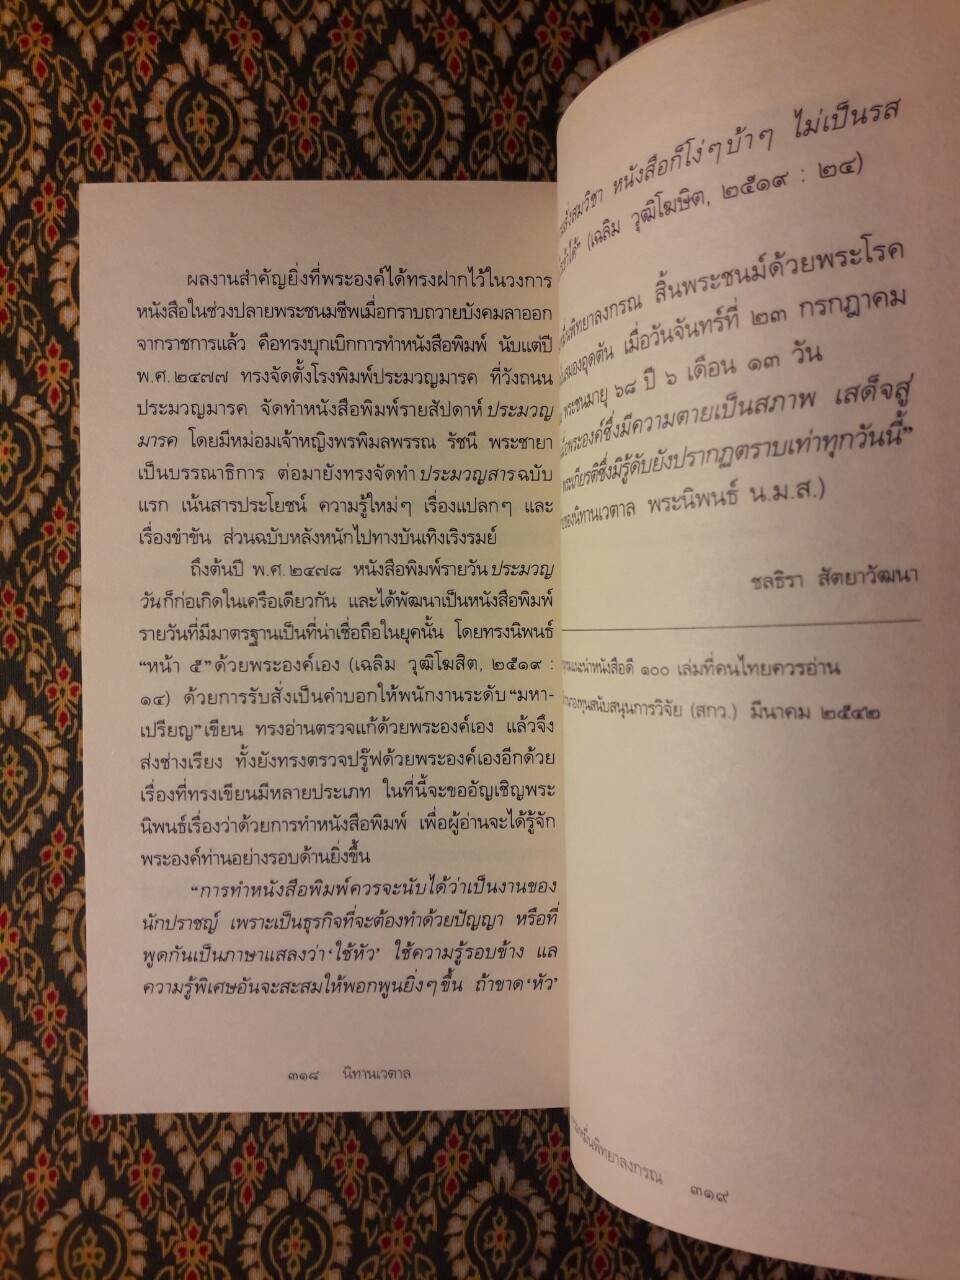 ผลงานสำคัญยิ่งที่พระองค์ได้ทรงฝากไว้ในวงการ
หนังสือในช่วงปลายพระชนมชีพเมื่อกราบถวายบังคมลาออก
จากราชการแล้ว คือทรงบุกเบิกการทำหนังสือพิมพ์ นับแต่ปี
พ.ศ.๒๔๗๗ ทรงจัดตั้งโรงพิมพ์ประมวญมารค ที่วังถนน
ประมวญมารค จัดทำหนังสือพิมพ์รายสัปดาห์ ประมวญ
มารค โดยมีหม่อมเจ้าหญิงพรพิมลพรรณ รัชนี พระชายา
เป็นบรรณาธิการ ต่อมายังทรงจัดทำ ประมวญสาร ฉบับ
แรก เน้นสารประโยชน์ ความรู้ใหม่ๆ เรื่องแปลกๆ และ
เรื่องขำขัน ส่วนฉบับหลังหนักไปทางบันเทิงเริงรมย์
ถึงต้นปี พ.ศ.๒๔๗๘ หนังสือพิมพ์รายวัน ประมวญ
วัน ก็ก่อเกิดในเครือเดียวกัน และได้พัฒนาเป็นหนังสือพิมพ์
รายวันที่มีมาตรฐานเป็นที่น่าเชื่อถือในยุคนั้น โดยทรงนิพนธ์
“หน้า ๕” ด้วยพระองค์เอง (เฉลิม วุฒิโฆสิต, ๒๕๑๙ :
๑๔) ด้วยการรับสั่งเป็นคำบอกให้พนักงานระดับ “มหา-
เปรียญ” เขียน ทรงอ่านตรวจแก้ด้วยพระองค์เอง แล้วจึง
ส่งช่างเรียง ทั้งยังทรงตรวจปรู๊ฟด้วยพระองค์เองอีกด้วย
เรื่องที่ทรงเขียนมีหลายประเภท ในที่นี้จะขออัญเชิญพระ
นิพนธ์เรื่องว่าด้วยการทำหนังสือพิมพ์ เพื่อผู้อ่านจะได้รู้จัก
พระองค์ท่านอย่างรอบด้านยิ่งขึ้น
“การทำหนังสือพิมพ์ควรจะนับได้ว่าเป็นงานของ
นักปราชญ์ เพราะเป็นธุรกิจที่จะต้องทำด้วยปัญญา หรือที่
พูดกันเป็นภาษาแสลงว่า ‘ใช้หัว’ ใช้ความรู้รอบข้าง แล
ความรู้พิเศษอันจะสะสมให้พอกพูนยิ่งๆ ขึ้น ถ้าขาด ‘หัว’
๓๑๘ นิทานเวตาล
สมวิชา หนังสือก็โง่ๆ บ้าๆ ไม่เป็นรส
(เฉลิม วุฒิโฆษิต, ๒๕๑๙ : ๒๔)
พิทยาลงกรณ สิ้นพระชนม์ด้วยพระโรค
สมองอุดตัน เมื่อวันจันทร์ที่ ๒๓ กรกฎาคม
พระชนมายุ ๖๘ ปี ๖ เดือน ๑๓ วัน
พระองค์ซึ่งมีความตายเป็นสภาพ เสด็จสู่
พระเกียรติซึ่งมิรู้ดับยังปรากฏตราบเท่าทุกวันนี้”
ของนิทานเวตาล พระนิพนธ์ น.ม.ส.)
ชลธิรา สัตยาวัฒนา
แนะนำหนังสือดี ๑๐๐ เล่มที่คนไทยควรอ่าน
กองทุนสนับสนุนการวิจัย (สกว.) มีนาคม ๒๕๔๒
หมื่นพิทยาลงกรณ ๓๑๙